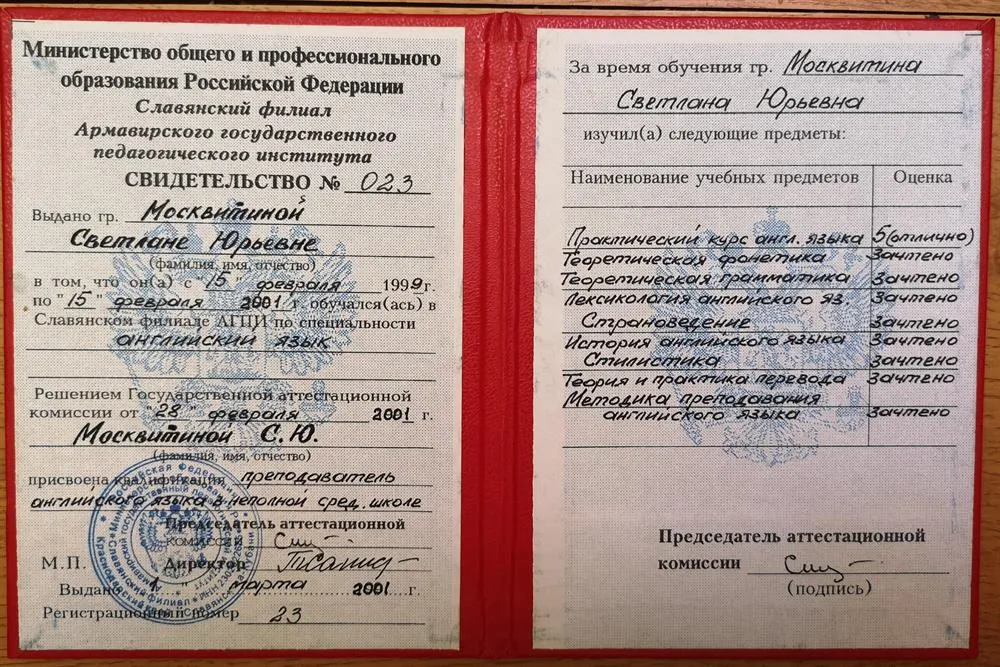 Министерство общего и профессионального
образования Российской Федерации
Славянский филиал
Армавирского государственного
педагогического института
СВИДЕТЕЛЬСТВО № 023
Выдано гр. Москвитиной
Светлане Юрьевне
(фамилия, имя, отчество)
в том, что он(а) с "15 февраля 1999 г.
по "15" февраля 2001 г. обучался(ась) в
Славянском филиале АГПИ по специальности
английский язык
Решением Государственной аттестационной
комиссии от "28" февраля 2001 г.
Москвитиной С.Ю.
(фамилия, имя, отчество)
присвоена квалификация преподаватель
английского языка в неполной сред. школе
Председатель аттестационной
комиссии
М.П. Директор
Выдано 1 " марта 2001 г.
Регистрационный номер 23
За время обучения гр. Москвитина
Светлана Юрьевна
изучил(а) следующие предметы:
Наименование учебных предметов Оценка
Практический курс англ. языка 5 (отлично)
Теоретическая фонетика Зачтено
Теоретическая грамматика Зачтено
Лексикология английского яз. Зачтено
Страноведение Зачтено
История английского языка Зачтено
Стилистика Зачтено
Теория и практика перевода Зачтено
Методика преподавания
английского языка Зачтено
Председатель аттестационной
комиссии
(подпись)